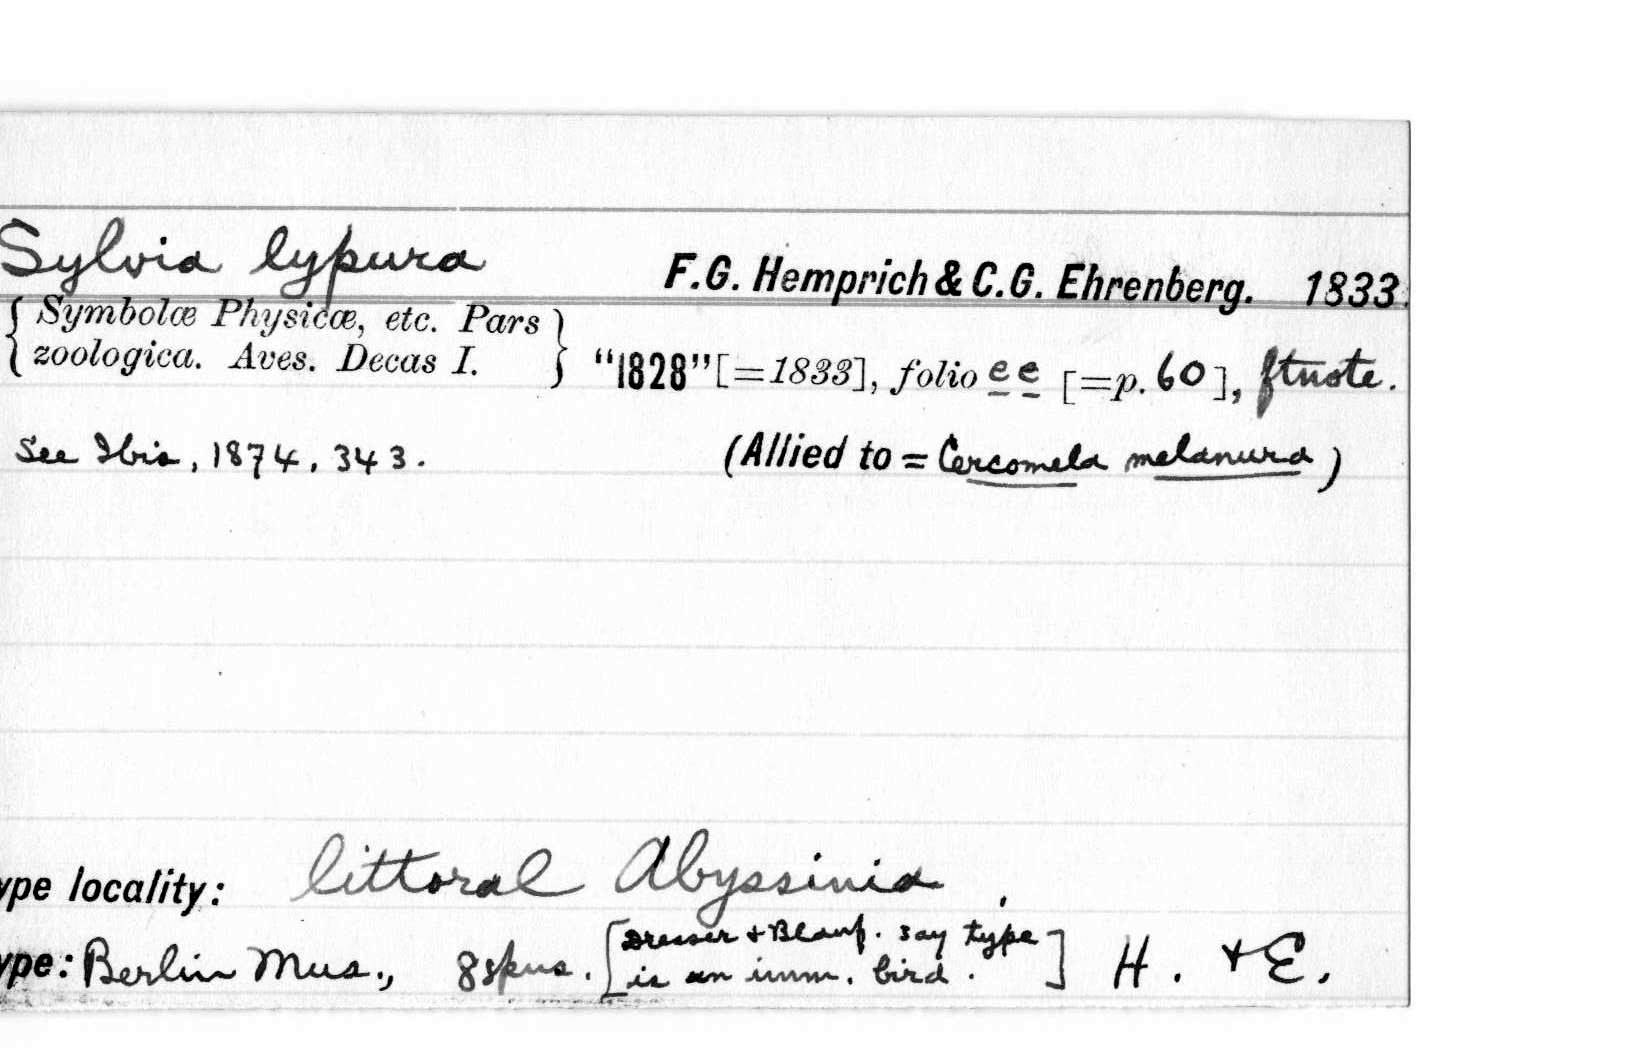 Sylvia lypura F.G. Hemprich & C.G. Ehrenberg. 1833.
{ Symbolæ Physicæ, etc. Pars
zoologica. Aves. Decas I. } "1828" [=1833], folio ee [=p. 60], ftnote.
See Ibis, 1874, 343. (Allied to = Cercomela melanura)
ype locality: littoral Abyssinia.
ype: Berlin Mus., 8 spus. [Dresser + Blanf. say type
is an imm. bird.] H. + E.